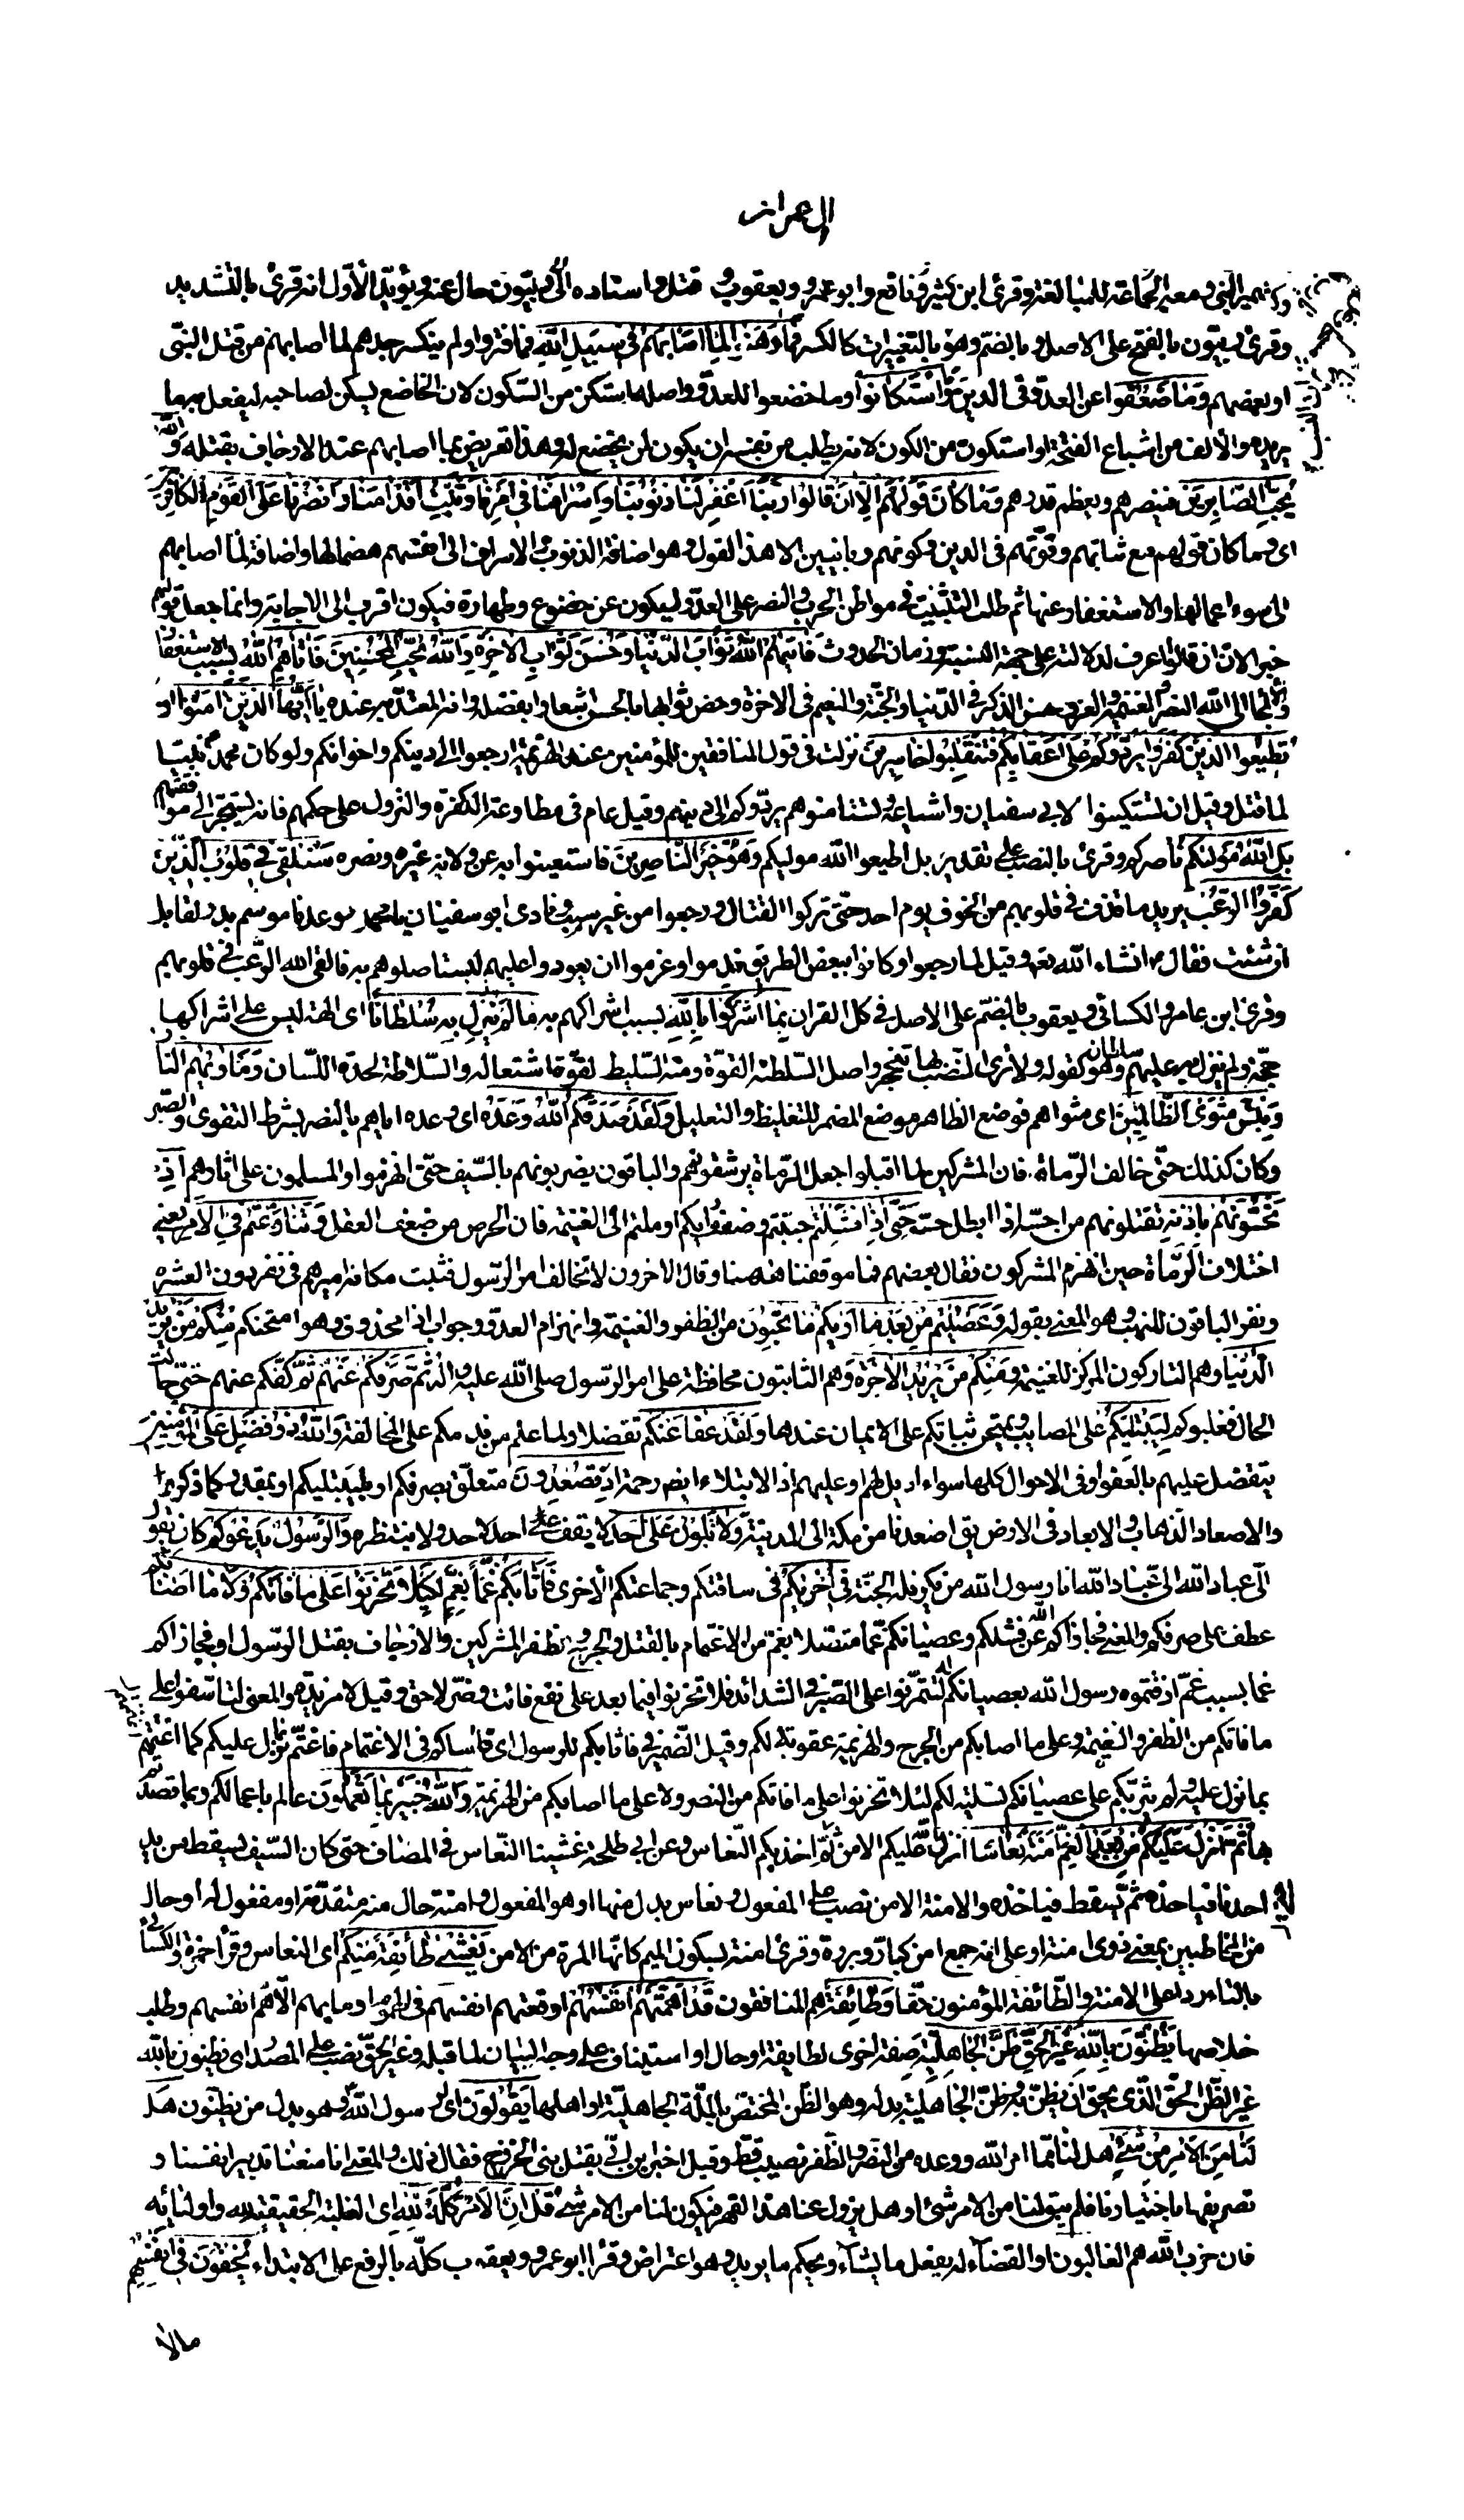 ال عمران
او ضمير النبي ومعه الجماعة للمبالغة وقرئ ابن كثير ونافع وابو عمرو ويعقوب قتل واسناده الى ربيون حال عنه ويؤيد الأول انه قرئ بالتشديد
وقرئ ربيون بالفتح على الاصل وبالضم وهو بالتغييرات كالكسر فما وهنوا لما اصابهم في سبيل الله فما فتروا ولم ينكسر جدهم لما اصابهم من قتل النبي
او بعضهم وما ضعفوا عن العدو وفي الدين وما استكانوا وما خضعوا للعدو واصله استكن من السكون لان الخاضع يسكن لصاحبه ليفعل به ما
يريده والألف من اشباع الفتحة او استكون من الكون لانه يطلب من نفسه ان يكون لمن يخضع له وهذا تعريض بما اصابهم عند الارجاف بقتله والله
يحب الصابرين فينصرهم ويعظم قدرهم وما كان قولهم الا ان قالوا ربنا اغفر لنا ذنوبنا واسرافنا في امرنا وثبت اقدامنا وانصرنا على القوم الكافرين
اي وما كان قولهم مع ثباتهم وقوتهم في الدين وكونهم ربانيين الا هذا القول وهو اضافة الذنوب والاسراف الى انفسهم هضما لها واضافة لما اصابهم
الى سوء اعمالها والاستغفار عنها ثم طلب التثبيت في مواطن الحرب والنصر على العدو ليكون عن خضوع وطهارة فيكون اقرب الى الاجابة وانما جعل قولهم
خبرا لان ان قالوا اعرف لدلالته على جهة النسبة وزمان الحدوث فاتيهم الله ثواب الدنيا وحسن ثواب الاخرة والله يحب المحسنين فاتاهم الله بسبب الاستغفار
واللجأ الى الله النصر والغنيمة والعز وحسن الذكر في الدنيا والجنة والنعيم في الاخرة وخص ثوابها بالحسن اشعارا بفضله وانه المعتد به عنده يا ايها الذين امنوا ان
تطيعوا الذين كفروا يردوكم على اعقابكم فتنقلبوا خاسرين نزلت في قول المنافقين للمؤمنين عند الهزيمة ارجعوا الى دينكم واخوانكم ولو كان محمد نبيا
لما قتل وقيل ان تستكينوا لابي سفيان واشياعه وتستامنوهم يردوكم الى دينهم وقيل عام في مطاوعة الكفرة والنزول على حكمهم فانه يستجر الى موافقتهم
بل الله موليكم ناصركم وقرئ بالنصب على تقدير بل اطيعوا الله موليكم وهو خير الناصرين فاستعينوا به عن ولاية غيره ونصره سنلقي في قلوب الذين
كفروا الرعب يريد ما قذف في قلوبهم من الخوف يوم احد حتى تركوا القتال ورجعوا من غير سبب ونادى ابو سفيان يا محمد موعدنا موسم بدر لقابل
ان شئت فقال ص انشاء الله تعا وقيل لما رجعوا وكانوا ببعض الطريق ندموا وعزموا ان يعودوا عليهم ليستاصلوهم به فالقى الله الرعب في قلوبهم
وقرئ ابن عامر والكسائي ويعقوب بالضم على الاصل في كل القران بما اشركوا بالله بسبب اشراكهم به ما لم ينزل به سلطانا اى الهة ليس على اشراكها
حجة ولم ينزل به عليهم سلطان وهو كقوله ولا ترى الضب بها ينجحر واصل السلطنة القوة ومنه السليط لقوة اشتعاله والسلاطة لحدة اللسان وماويهم النار
وبئس مثوى الظالمين اى مثواهم فوضع الظاهر موضع المضمر للتغليظ والتعليل ولقد صدقكم الله وعده اى وعده اياهم بالنصر بشرط التقوى والصبر
وكان كذلك حتى خالف الرماة فان المشركين لما اقبلوا جعل الرماة يرشقونهم والباقون يضربونهم بالسيف حتى انهزموا والمسلمون على اثارهم اذ
تحسونهم باذنه تقتلونهم من احسه اذا ابطل حسه حتى اذا فشلتم جبنتم وضعف رايكم او ملتم الى الغنيمة فان الحرص من ضعف العقل وتنازعتم في الامر يعني
اختلاف الرماة حين انهزم المشركون فقال بعضهم فما موقفنا ههنا وقال الاخرون لا تخالف امر الرسول فثبت مكانه اميرهم في نفر دون العشره
ونفر الباقون للنهب وهو المعني بقوله وعصيتم من بعد ما اريكم ما تحبون من الظفر والغنيمة وانهزام العدو وجواب اذا محذوف وهو امتحنكم منكم من يريد
الدنيا وهم التاركون المركز للغنيمة ومنكم من يريد الاخرة وهم الثابتون محافظة على امر الرسول صلى الله عليه واله ثم صرفكم عنهم ثم كفكم عنهم حتى حالت
الحال فغلبوكم ليبتليكم على المصايب ويمتحن ثباتكم على الايمان عندها ولقد عفا عنكم تفضلا ولما علم من ندمكم على المخالفة والله ذو فضل على المؤمنين
يتفضل عليهم بالعفو او في الاحوال كلها سواء اديل لهم او عليهم اذ الابتلاء ايضا رحمة اذ تصعدون متعلق بصرفكم او ليبتليكم او بمقدر كما ذكروا
والاصعاد الذهاب والابعاد في الارض يق اصعدنا من مكة الى المدينة ولا تلون على احد لا يقف احد لاحد ولا ينتظره والرسول يدعوكم كان يقول
الى عباد الله الى عباد الله انا رسول الله من يكر فله الجنة في اخريكم في ساقتكم وجماعتكم الاخرى فاثابكم غما بغم لكيلا تحزنوا على ما فاتكم ولا ما اصابكم
عطف على صرفكم والمعنى فجازاكم الله عن فشلكم وعصيانكم غما متصلا بغم من الاغتمام بالقتل والجرح وظفر المشركين والارجاف بقتل الرسول او فجازاكم
غما بسبب غم اذقتموه رسول الله بعصيانكم له لتتمرنوا على الصبر في الشدائد فلا تحزنوا فيما بعد على نفع فائت وضر لاحق وقيل لا مزيدة والمعنى لتاسفوا على
ما فاتكم من الظفر والغنيمة وعلى ما اصابكم من الجرح والهزيمة عقوبة لكم وقيل الضمير في فاثابكم للرسول اى فاساكم في الاغتمام فاغتم بما نزل عليكم كما اغتممتم
بما نزل عليه ولم يثربكم على عصيانكم تسلية لكم لئلا تحزنوا على ما فاتكم من النصر ولا على ما اصابكم من الهزيمة والله خبير بما تعملون عالم باعمالكم وبما قصدتم
بها ثم انزل عليكم من بعد الغم امنة نعاسا انزل الله عليكم الامن حتى اخذكم النعاس وعن ابي طلحة غشينا النعاس في المصاف حتى كان السيف يسقط من يد
احدنا فياخذه ثم يسقط فياخذه والامنة الامن نصب على المفعول ونعاس بدل منها او هو المفعول وامنة حال منه متقدمة او مفعول له او حال
من المخاطبين بمعنى ذوى امنة او على انه جمع امن كبار وبررة وقرئ امنة بسكون الميم كانها المرة من الامن يغشى طائفة منكم اى النعاس وقرأ حمزة والكسائي
بالتاء ردا على الامنة والطائفة المؤمنون حقا وطائفة هم المنافقون قد اهمتهم انفسهم اوقعتهم انفسهم في الهموم او ما يهمهم الا هم انفسهم وطلب
خلاصها يظنون بالله غير الحق ظن الجاهلية صفة اخرى لطايفة او حال او استيناف على وجه البيان لما قبله وغير الحق نصب على المصدر اى يظنون بالله
غير الظن الحق الذي يحق ان يظن به وظن الجاهلية بدله وهو الظن المختص بالملة الجاهلية او اهلها يقولون اى لرسول الله وهو بدل من يظنون هل
لنا من الامر من شئ هل لنا مما امر الله ووعده من النصر والظفر نصيب قط وقيل اخبر ابن ابي بقتل بني الخزرج فقال ذلك والمعنى انا منعنا تدبير انفسنا و
تصريفها باختيارنا فلم يبق لنا من الامر شئ او هل يزول عنا هذا القهر فيكون لنا من الامر شئ قل ان الامر كله لله اى الغلبة الحقيقية لله واوليائه
فان حزب الله هم الغالبون او القضاء له يفعل ما يشاء ويحكم ما يريد وهو اعتراض وقرأ ابو عمرو ويعقوب كله بالرفع على الابتداء يخفون في انفسهم
مالا